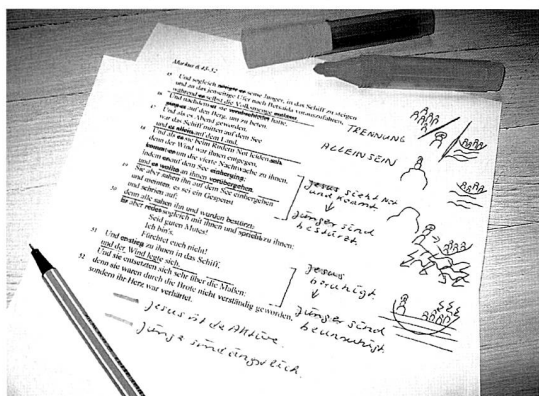 Markus 6,45-52
45 Und sogleich nötigte er seine Jünger, in das Schiff zu steigen
und an das jenseitige Ufer nach Betsaida vorauszufahren,
während er selbst die Volksmenge entliess.
46 Und nachdem er sie verabschiedet hatte,
ging er auf den Berg, um zu beten.
47 Und als es Abend geworden,
war das Schiff mitten auf dem See
und er allein auf dem Land.
48 Und als er sie beim Rudern Not leiden sah,
denn der Wind war ihnen entgegen,
kommt er um die vierte Nachtwache zu ihnen,
indem er auf dem See einherging;
und er wollte an ihnen vorübergehen.
49 Sie aber sahen ihn auf dem See einhergehen
und meinten, es sei ein Gespenst
und schrien auf;
50 denn alle sahen ihn und wurden bestürzt;
er aber redete sogleich mit ihnen und spricht zu ihnen:
Seid guten Mutes!
Ich bin's.
Fürchtet euch nicht!
51 Und er stieg zu ihnen in das Schiff,
und der Wind legte sich.
Und sie entsetzten sich sehr über die Maßen;
52 denn sie waren durch die Brote nicht verständig geworden,
sondern ihr Herz war verhärtet.
TRENNUNG
ALLEINSEIN
Jesus sieht Not
und kommt.
Jünger sind
bestürzt.
Jesus
beruhigt.
Jünger sind
beunruhigt.
Jesus ist der Aktive.
Jünger sind ängstlich.